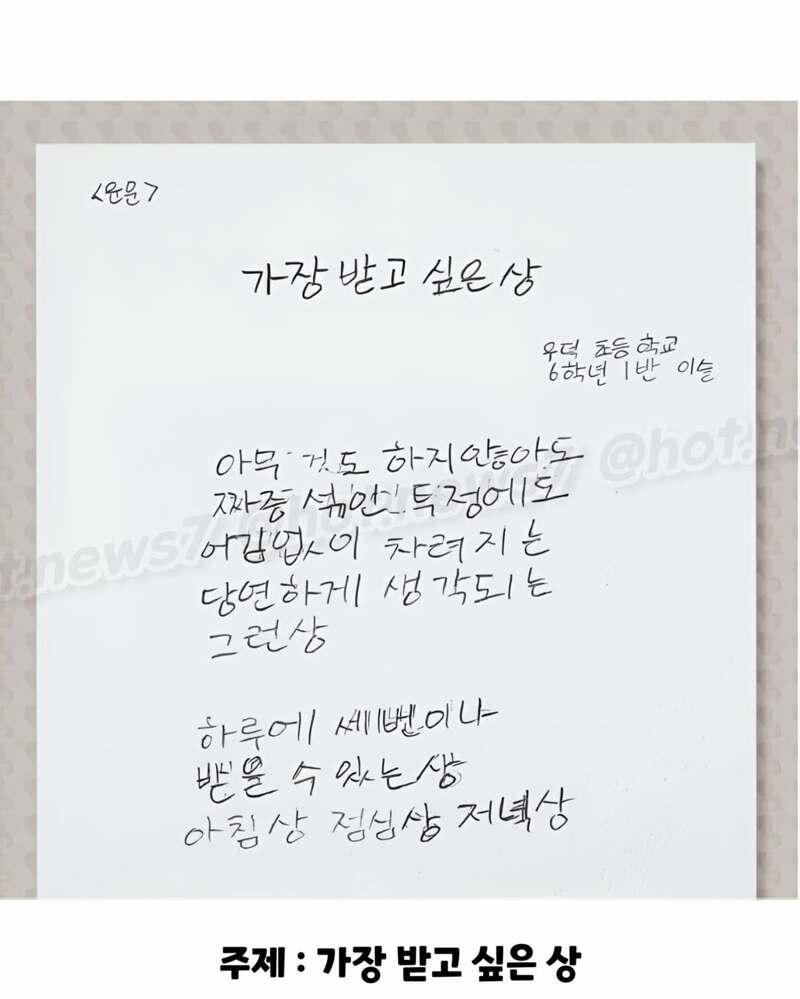 <운문>
가장 받고 싶은 상
우덕 초등학교
6학년 1반 이슬
아무 것도 하지않아도
짜증 섞인 투정에도
어김없이 차려지는
당연하게 생각되는
그런상
하루에 세번이나
받을 수 있는상
아침상 점심상 저녁상
hot.news7 @hot.news7 @hot.news
주제 : 가장 받고 싶은 상